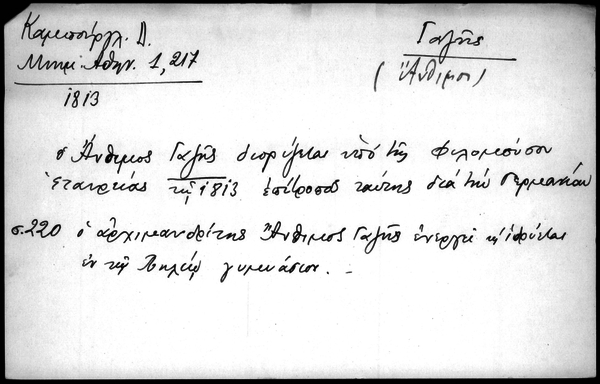 Καμπούρογλ. Δ.
Μνημ. Αθην. 1, 217
1813
Γαζῆς
(Ἄνθιμος)
ὁ Ἄνθιμος Γαζῆς διορίζεται ὑπὸ τῆς Φιλομούσου
Ἑταιρείας τῷ 1813 ἐπίτροπος ταύτης διὰ τὴν Γερμανίαν
σ. 220 ὁ ἀρχιμανδρίτης Ἄνθιμος Γαζῆς ἐνεργεῖ νὰ ἱδρύεται
ἐν τῷ Πηλίῳ γυμνάσιον. –